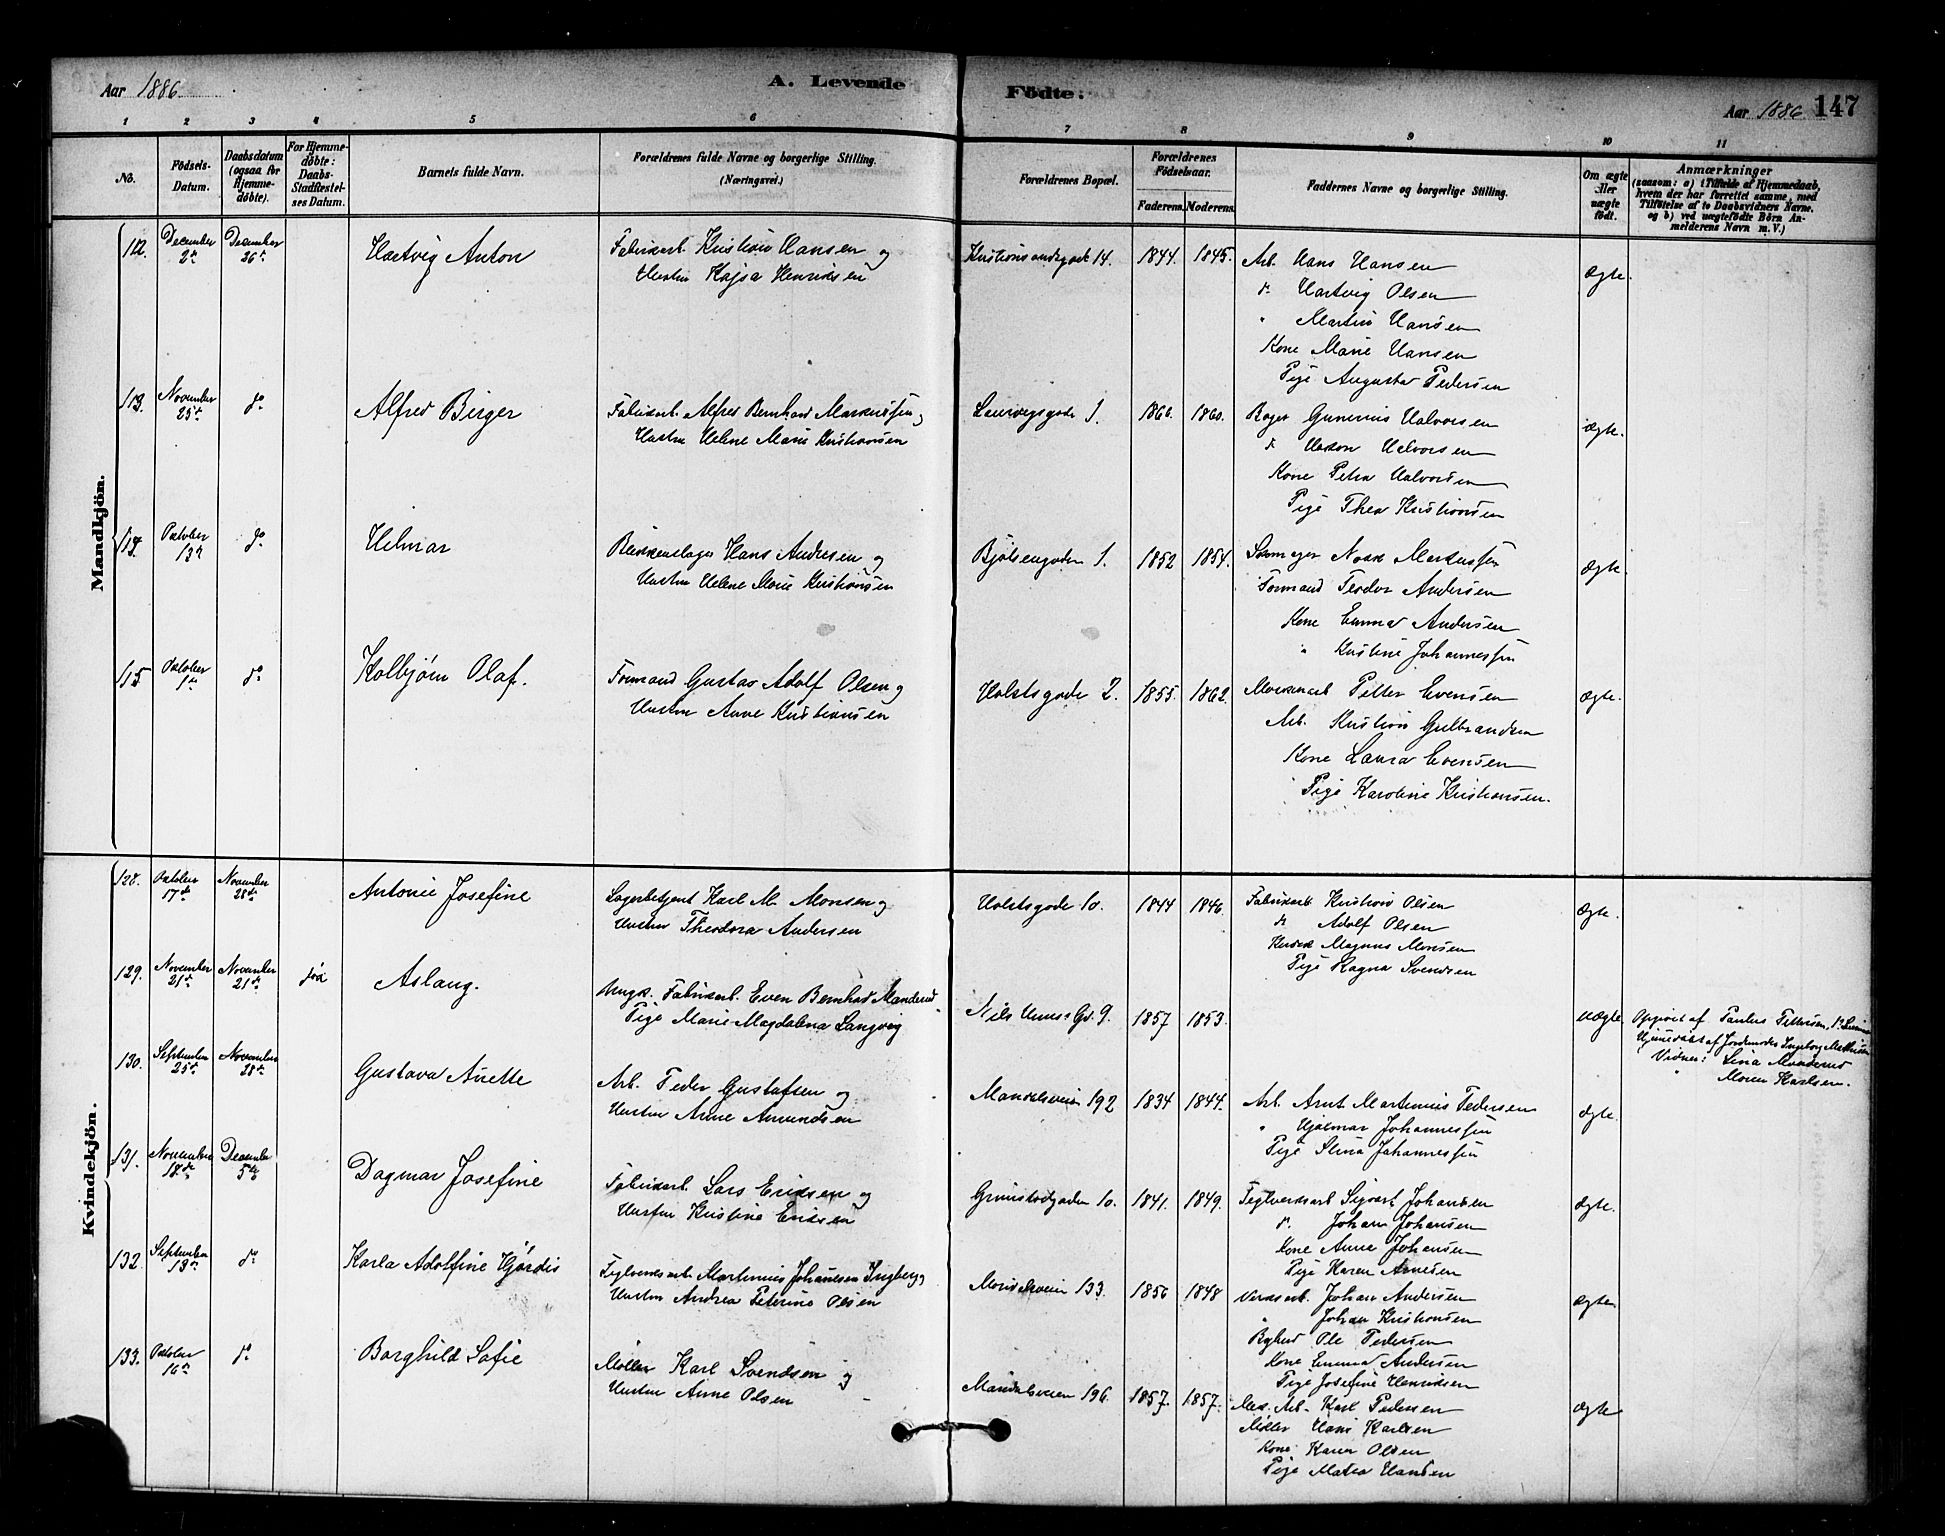 Aar 1886.
A. Levende
Födte.
Aar 1886 147
1 2 3 4 5 6 7 8 9 10 11
No.
Födsels-Datum.
Daabsdatum (ogsaa for Hjemme-döbte).
For Hjemme-döbte: Daabs-Stadfæstel-ses Datum.
Barnets fulde Navn.
Forældrenes fulde Navne og borgerlige Stilling.
(Næringsvei.)
Forældrenes Bopæl.
Forældrenes Födselsaar.
Faderens. Moderens.
Faddernes Navne og borgerlige Stilling.
Om ægte eller uægte födt.
Anmærkninger
(saasom: a) i Tilfælde af Hjemmedaab,
hvem der har forrettet samme, med
Tilföielse af to Daabsvidners Navne.
og b) ved uægtefödte Börn An-
melderens Navn m. V.)
Mandkjön.
112. December 2d December 26d Hartvig Anton
Fabrikarb. Kristian Hansen og
Hustru Kajsa Henriksen
Kristiansandsgade 14. 1844. 1845.
Arb. Hans Hansen
do Hartvig Olsen
" Martin Hansen
Kone Marie Hansen
Pige Augusta Pedersen
ægte.
113. November 25d do Alfred Birger
Fabrikarb. Alfred Bernhard Markussen og
Hustru Helene Marie Kristiansen
Laurvigsgade 1. 1860. 1860.
Bager Gunerius Halvorsen
do Haakon Halvorsen
Kone Petra Halvorsen
Pige Thea Kristiansen
ægte.
October 13d do Hilmar
Blikkenslager Hans Andersen og
Hustru Helene Marie Kristiansen
Bjölsengaden 1. 1852 1854.
Markussen
Formand Teodor Andersen
Kone Emma Andersen
" Kristine Johannessen
ægte.
115 October 1ste do Kolbjörn Olaf.
Formand Gustav Adolf Olsen og
Hustru Anne Kristiansen
Holstsgade 2. 1855. 1862.
Petter Evensen
Arb. Kristian Gulbrandsen
Kone Laura Evensen
Pige Karoline Kristiansen.
ægte.
Kvindekjön.
128. October 17de November 28de Antonie Josefine
Lagerbetjent Karl M. Monsen og
Hustru Theodora Andersen
Holstsgade 10. 1844 1846.
Fabrikarb. Kristian Olsen
do Adolf Olsen
Magnus Monsen
Pige Ragna Svendsen
ægte.
129. November 21de November 21de Aslaug.
Ungk. Fabrikarb. Even Bernhard Manderud
Pige Marie Magdalena Langvig
Gd. 9. 1857 1853.
uægte
Opgivet af Paulus Pettersen,
Hjemmedöbt af Jordemoder Ingeborg
Vidner: Lina Manderud
" Maren Karlsen.
130. September 25de November 28de Gustava Anette
Arb. Peder Gustafsen og
Hustru Anne Amundsen
Mandalsveien 192 1834 1844.
Arb. Arnt Martinius Pedersen
" Hjalmar Johannessen
Pige Stina Johannessen
ægte.
131. November 18de December 5te Dagmar Josefine
Fabrikarb. Lars Eriksen og
Hustru Kristine Eriksen
Grimstadgaden 10. 1841. 1849.
Teglverksarb Sigvart Johansen
do Johan Johansen
Kone Anna Johansen
Pige Karen Arnesen
ægte.
132. September 13de do Karla Adolfine Hjördis
Teglverksarb. Martinius Johannesen Ingberg og
Hustru Andrea Peterine Olsen
Mandalsveien 133. 1856 1848
Verksarb. Johan Andersen
" Johan Kristiansen
Ole Pedersen
Kone Emma Andersen
Pige Josefine Henriksen
ægte.
133. October 16de do Borghild Sofie
Möller Karl Svendsen og
Hustru Anne Olsen
Mandalsveien 196. 1857. 1857.
Arb. Karl Pedersen
Möller Hans Karlsen
Kone Karen Olsen
Pige Matea Hansen
ægte